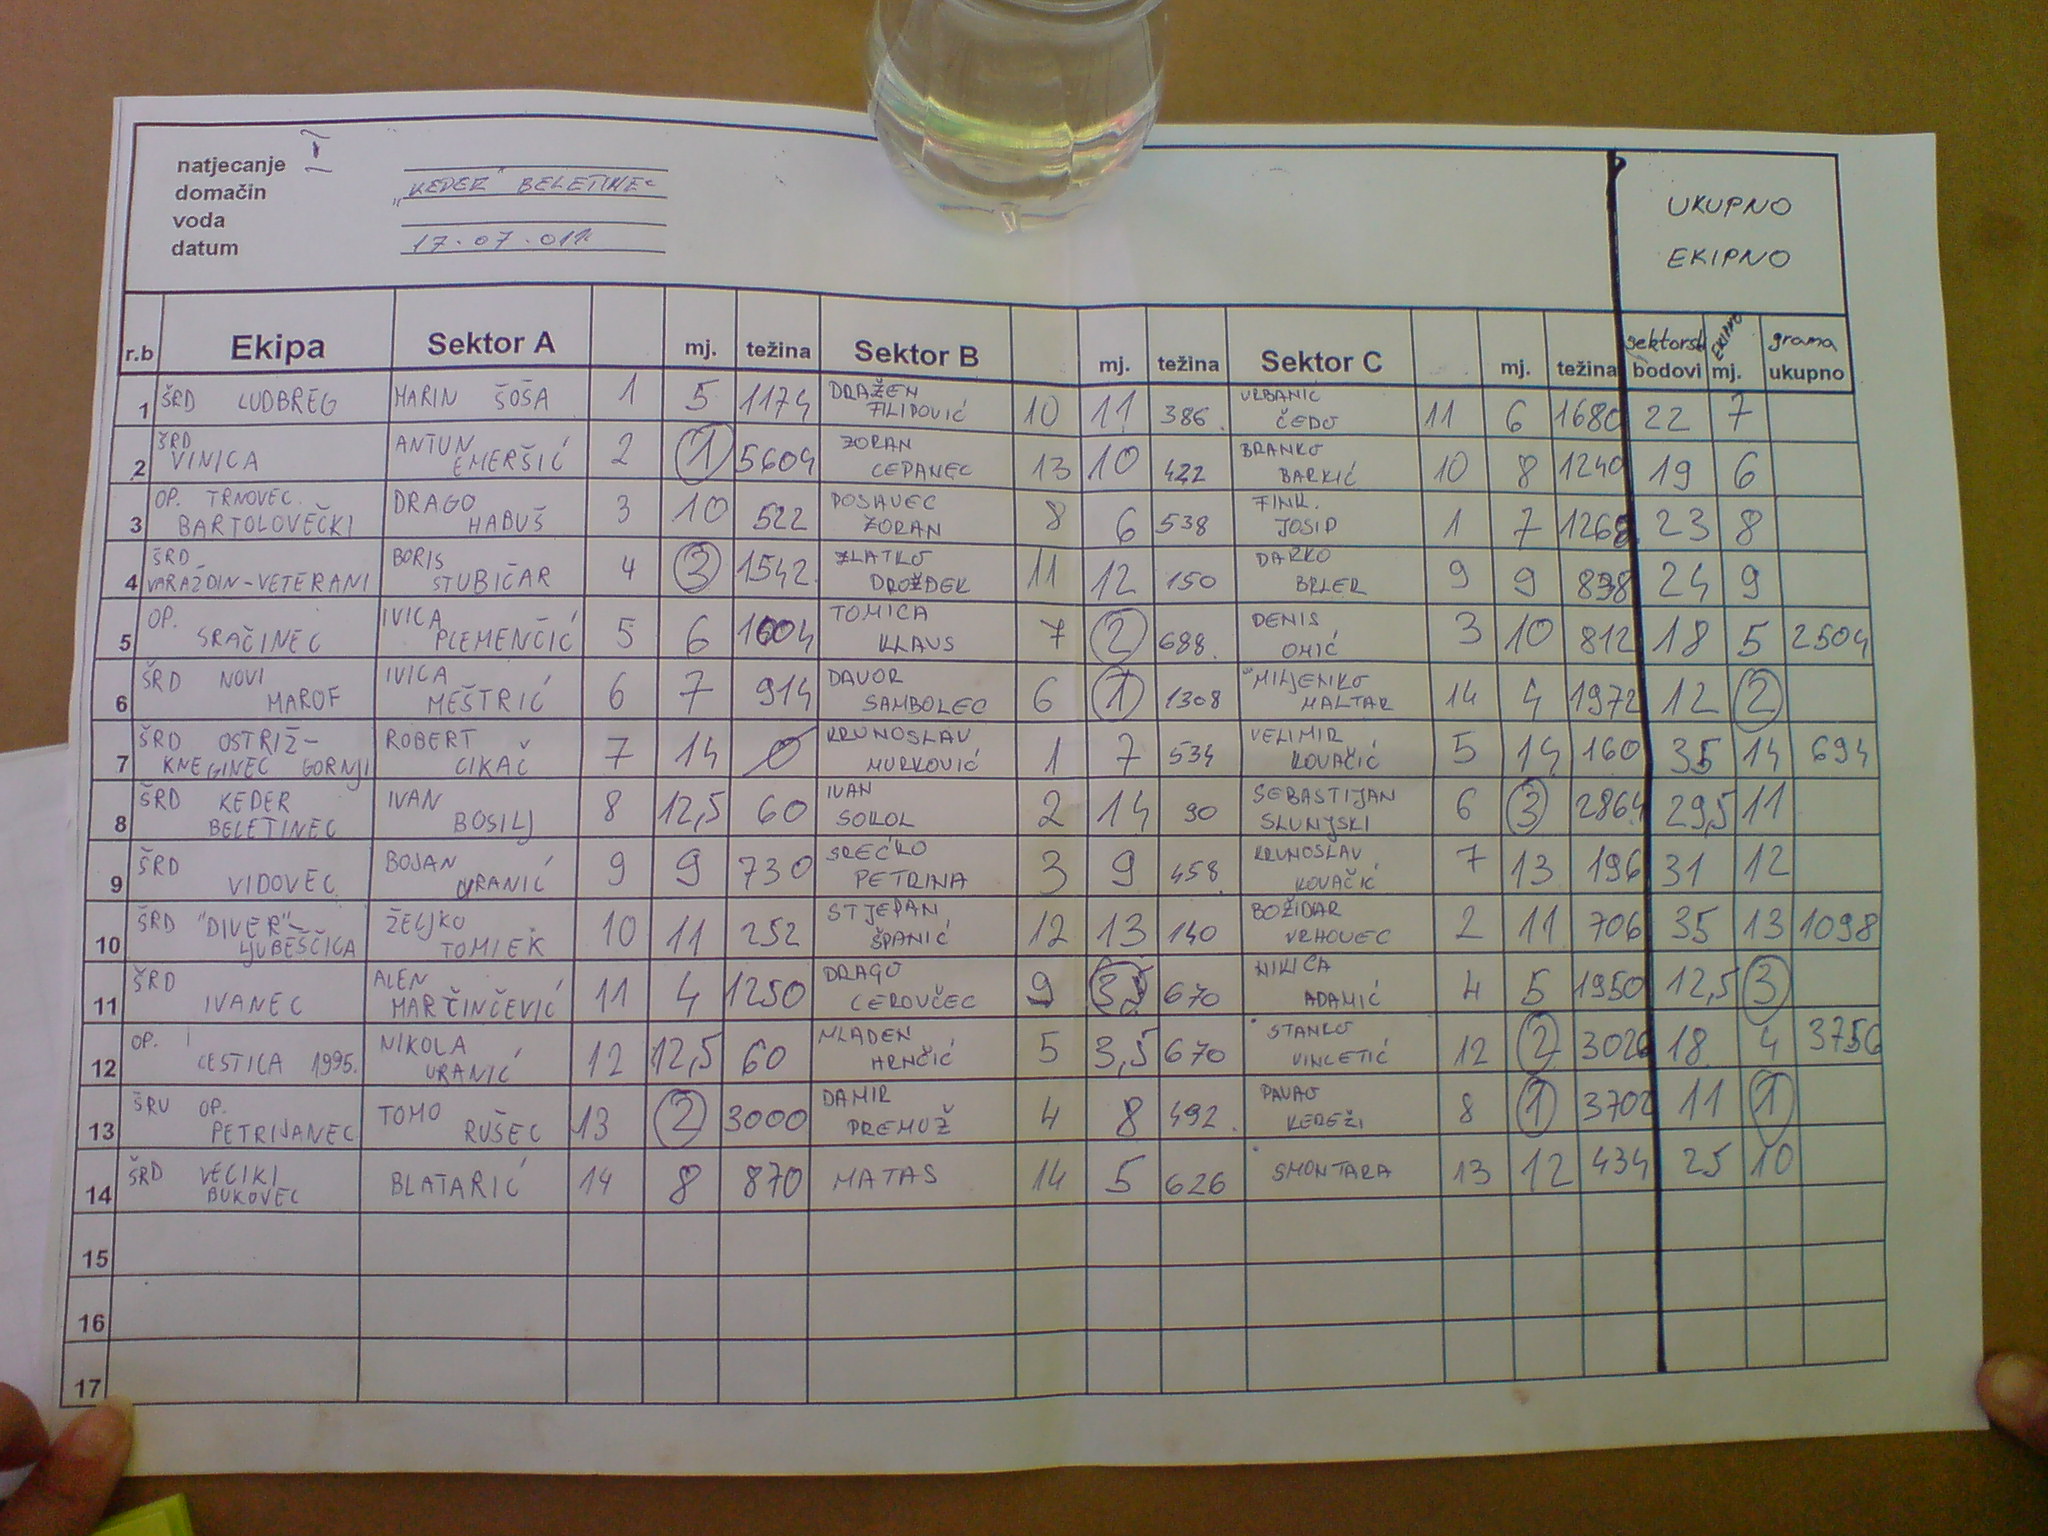 natjecanje I
domaćin "KEDER" BELETINEC
voda
datum 17.07.011.
UKUPNO
EKIPNO
r.b Ekipa Sektor A mj. težina Sektor B mj. težina Sektor C mj. težina sektorski bodovi EKIPNO mj. grama ukupno
1 ŠRD LUDBREG MARIN ŠOŠA 1 5 1174 DRAŽEN FILIPOVIĆ 10 11 386. URBANIC ČEDO 11 6 1680 22 7
2 ŠRD VINICA ANTUN EMERŠIĆ 2 1 5604 ZORAN CEPANEC 13 10 422 BRANKO BARKIĆ 10 8 1240 19 6
3 OP. TRNOVEC BARTOLOVEČKI DRAGO HABUŠ 3 10 522 POSAVEC ZORAN 8 6 538 FINK. JOSIP 1 7 1268 23 8
4 ŠRD VARAŽDIN-VETERANI BORIS STUBIČAR 4 3 1542. ZLATKO DROŽDEK 11 12 150 DARKO BRLER 9 9 838 24 9
5 OP. SRAČINEC IVICA PLEMENČIĆ 5 6 1004 TOMICA KLAUS 7 2 688. DENIS OMIĆ 3 10 812 18 5 2504
6 ŠRD NOVI MAROF IVICA MEŠTRIĆ 6 7 914 DAVOR SAMBOLEC 6 1 1308 MILJENKO MALTAR 14 4 1972 12 2
7 ŠRD OSTRIŽ- KNEGINEC GORNJI ROBERT CIKAČ 7 14 0 KRUNOSLAV MURKOVIĆ 1 7 534 VELIMIR KOVAČIĆ 5 14 160 35 14 694
8 ŠRD KEDER BELETINEC IVAN BOSILJ 8 12,5 60 IVAN SOKOL 2 14 90 SEBASTIJAN SLUNJSKI 6 3 2864 29,5 11
9 ŠRD VIDOVEC BOJAN VRANIĆ 9 9 730 SREĆKO PETRINA 3 9 458 KRUNOSLAV KOVAČIĆ 7 13 196 31 12
10 ŠRD "DIVER"- LJUBEŠČICA ŽELJKO TOMIEK 10 11 252 STJEPAN ŠPANIĆ 12 13 140 BOŽIDAR VRHOVEC 2 11 706 35 13 1098
11 ŠRD IVANEC ALEN MARČINČEVIĆ 11 4 1250 DRAGO CEROVČEC 9 3,5 670 NIKICA ADAMIĆ 4 5 1950 12,5 3
12 OP. CESTICA 1995. NIKOLA VRANIĆ 12 12,5 60 MLADEN HRNČIĆ 5 3,5 670 STANKO VINCETIĆ 12 2 3026 18 4 3756
13 ŠRU OP. PETRIJANEC TOMO RUŠEC 13 2 3000 DAMIR PREMUŽ 4 8 492. PAVAO KEREŽI 8 1 3702 11 1
14 ŠRD VELIKI BUKOVEC BLATARIĆ 14 8 870 MATAS 14 5 626 SMONTARA 13 12 434 25 10
15
16
17